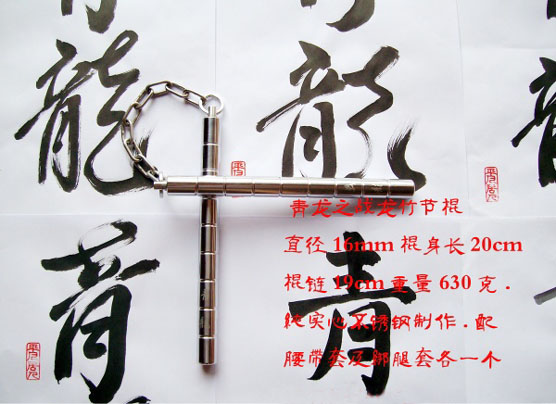 青龍
青龍
青
青
青龙之战龙竹节棍
直径16mm棍身长20cm
棍链19cm重量630克.
纯实心不锈钢制作.配
腰带套及绑腿套各一个